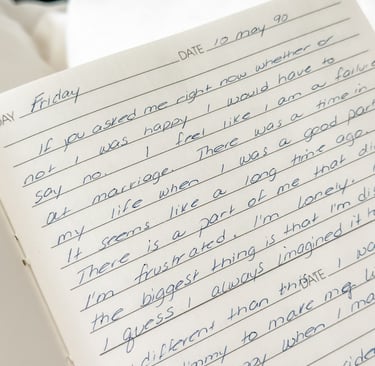 DAY Friday DATE 10 may 90
If you asked me right now whether or
not I was happy I would have to
say no. I feel like I am a failure
at marriage. There was a time in
my life when I was a good part
It seems like a long time ago.
There is a part of me that di
I'm frustrated. I'm lonely.
the biggest thing is that I'm dis
I guess I always imagined it
different than this. I wa
DATE
to make me
when I ma